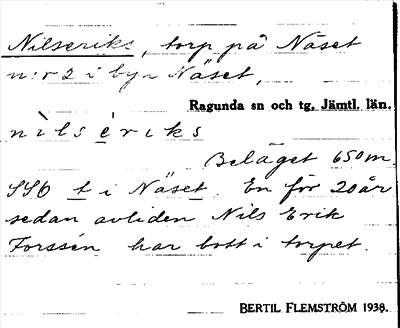 Nilseriks, torp på Näset
n:r 2 i byn Näset,
Ragunda sn och tg. Jämtl. län.
nìlsériks
Beläget 650m
SSO t i Näset. En för 20 år
sedan avliden Nils Erik
Forssén har bott i torpet.
BERTIL FLEMSTRÖM 1938.